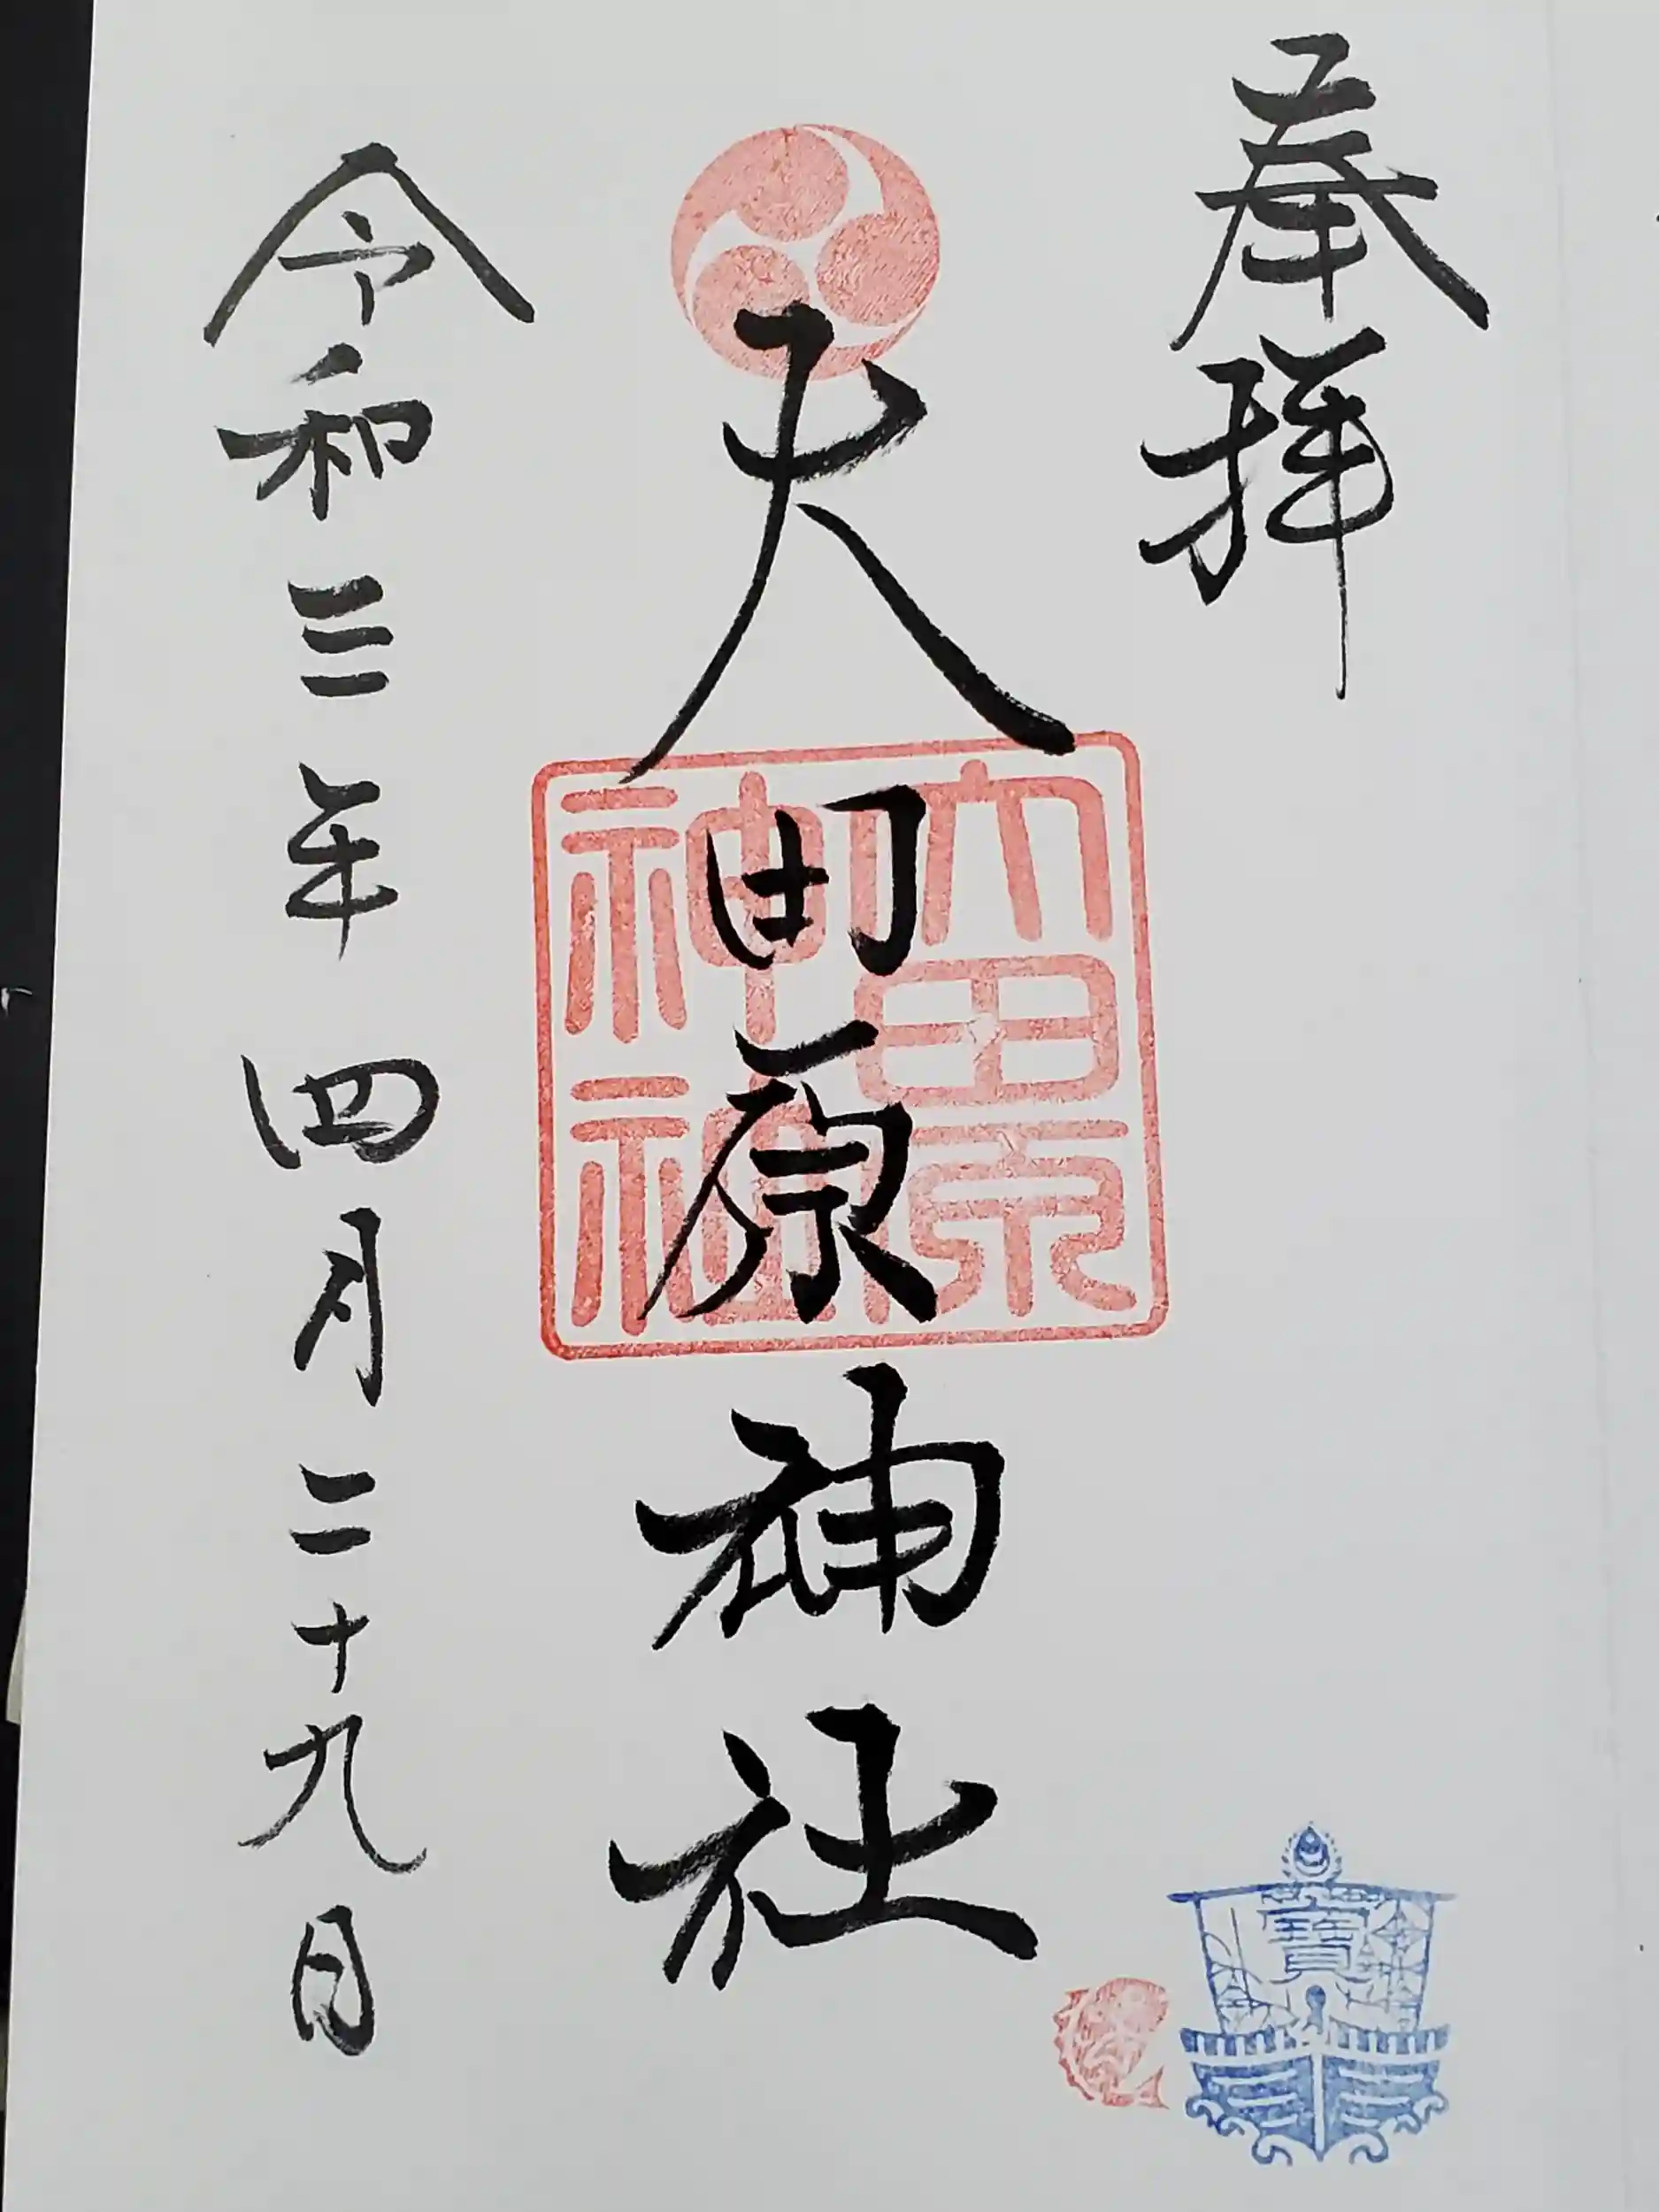 奉拝
大田原神社
令和三年四月二十九日
大田原
神社
寶